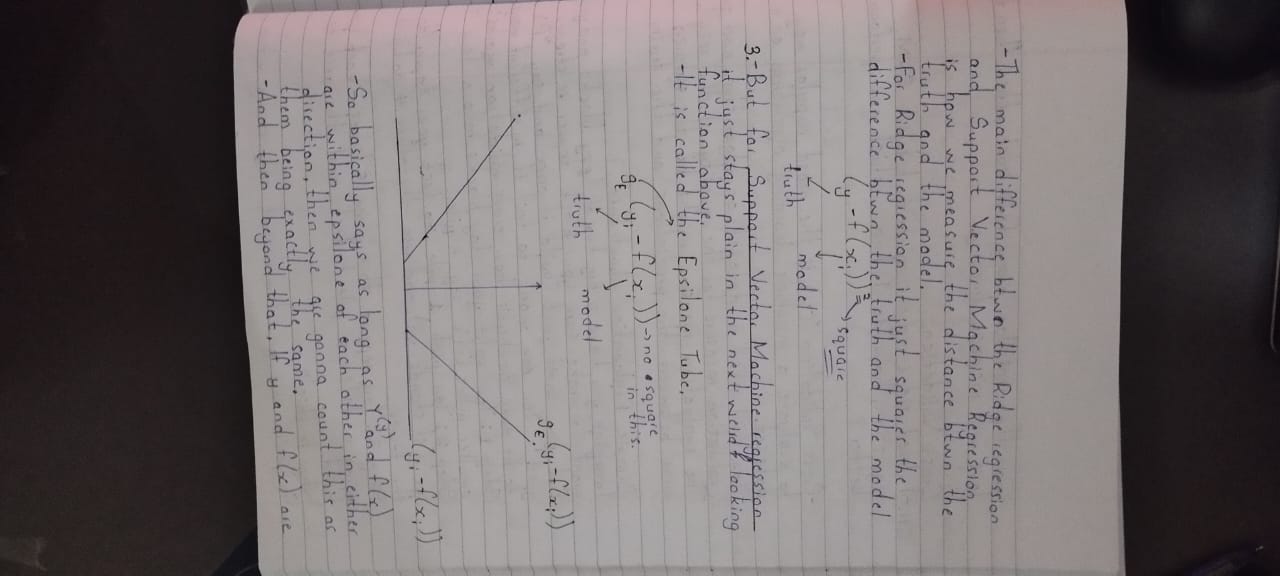 - The main difference btwn the Ridge regression
and Support Vector Machine Regression
is how we measure the distance btwn the
truth and the model.
- For Ridge regression it just squares the
difference btwn the truth and the model
(y - f(xi))² → square
truth model
3.- But for Support Vector Machine regression
it just stays plain in the next weird looking
function above.
- It is called the Epsilone Tube.
gε (yi - f(xi)) → no square
in this.
truth model
gε (yi - f(xi))
(yi - f(xi))
- So basically says as long as Y(y) and f(x)
are within epsilone of each other in either
direction, then we are gonna count this as
them being exactly the same.
- And then beyond that, If y and f(x) are